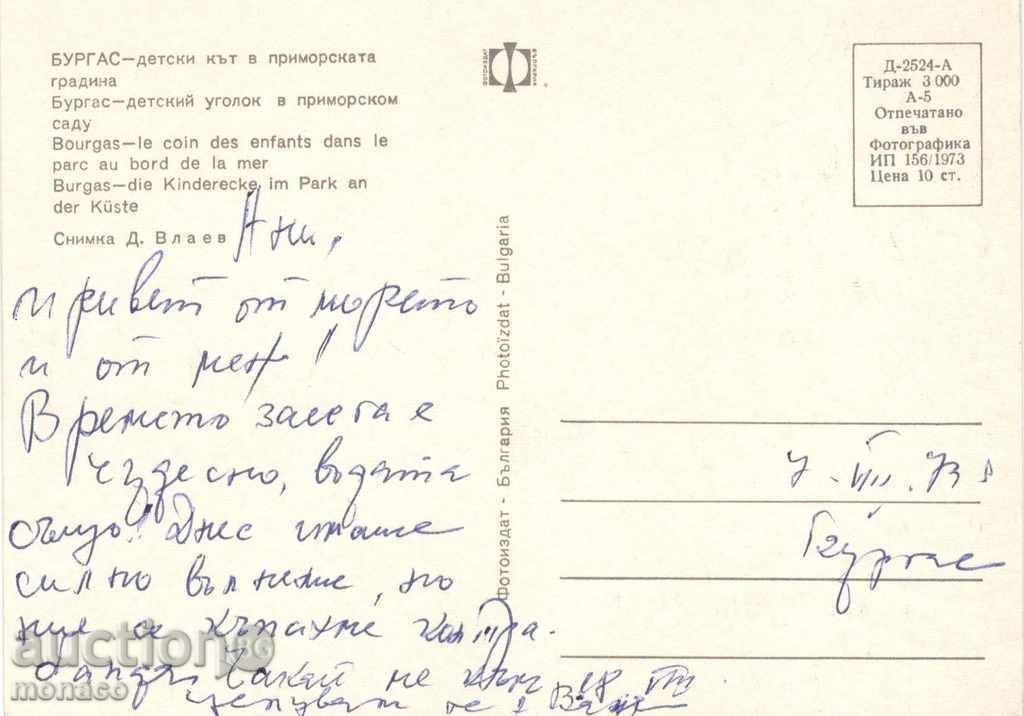 БУРГАС—детски кът в приморската
градина
Бургас—детский уголок в приморском
саду
Bourgas—le coin des enfants dans le
parc au bord de la mer
Burgas—die Kinderecke im Park an
der Küste
Снимка Д. Влаев
ФОТОИЗДАТ БЪЛГАРИЯ
Д-2524-А
Тираж 3 000
А-5
Отпечатано
във
Фотографика
ИП 156/1973
Цена 10 ст.
Фотоиздат - България Photoïzdat - Bulgaria
Ани,
привет от морето
и от мен!
Времето засега е
чудесно, водата
също! Днес имаше
силно вълнение, но
ние се къпахме
Чакай не към 18
целувам те
7. VIII. 73
Бургас
auction.BG
monaco